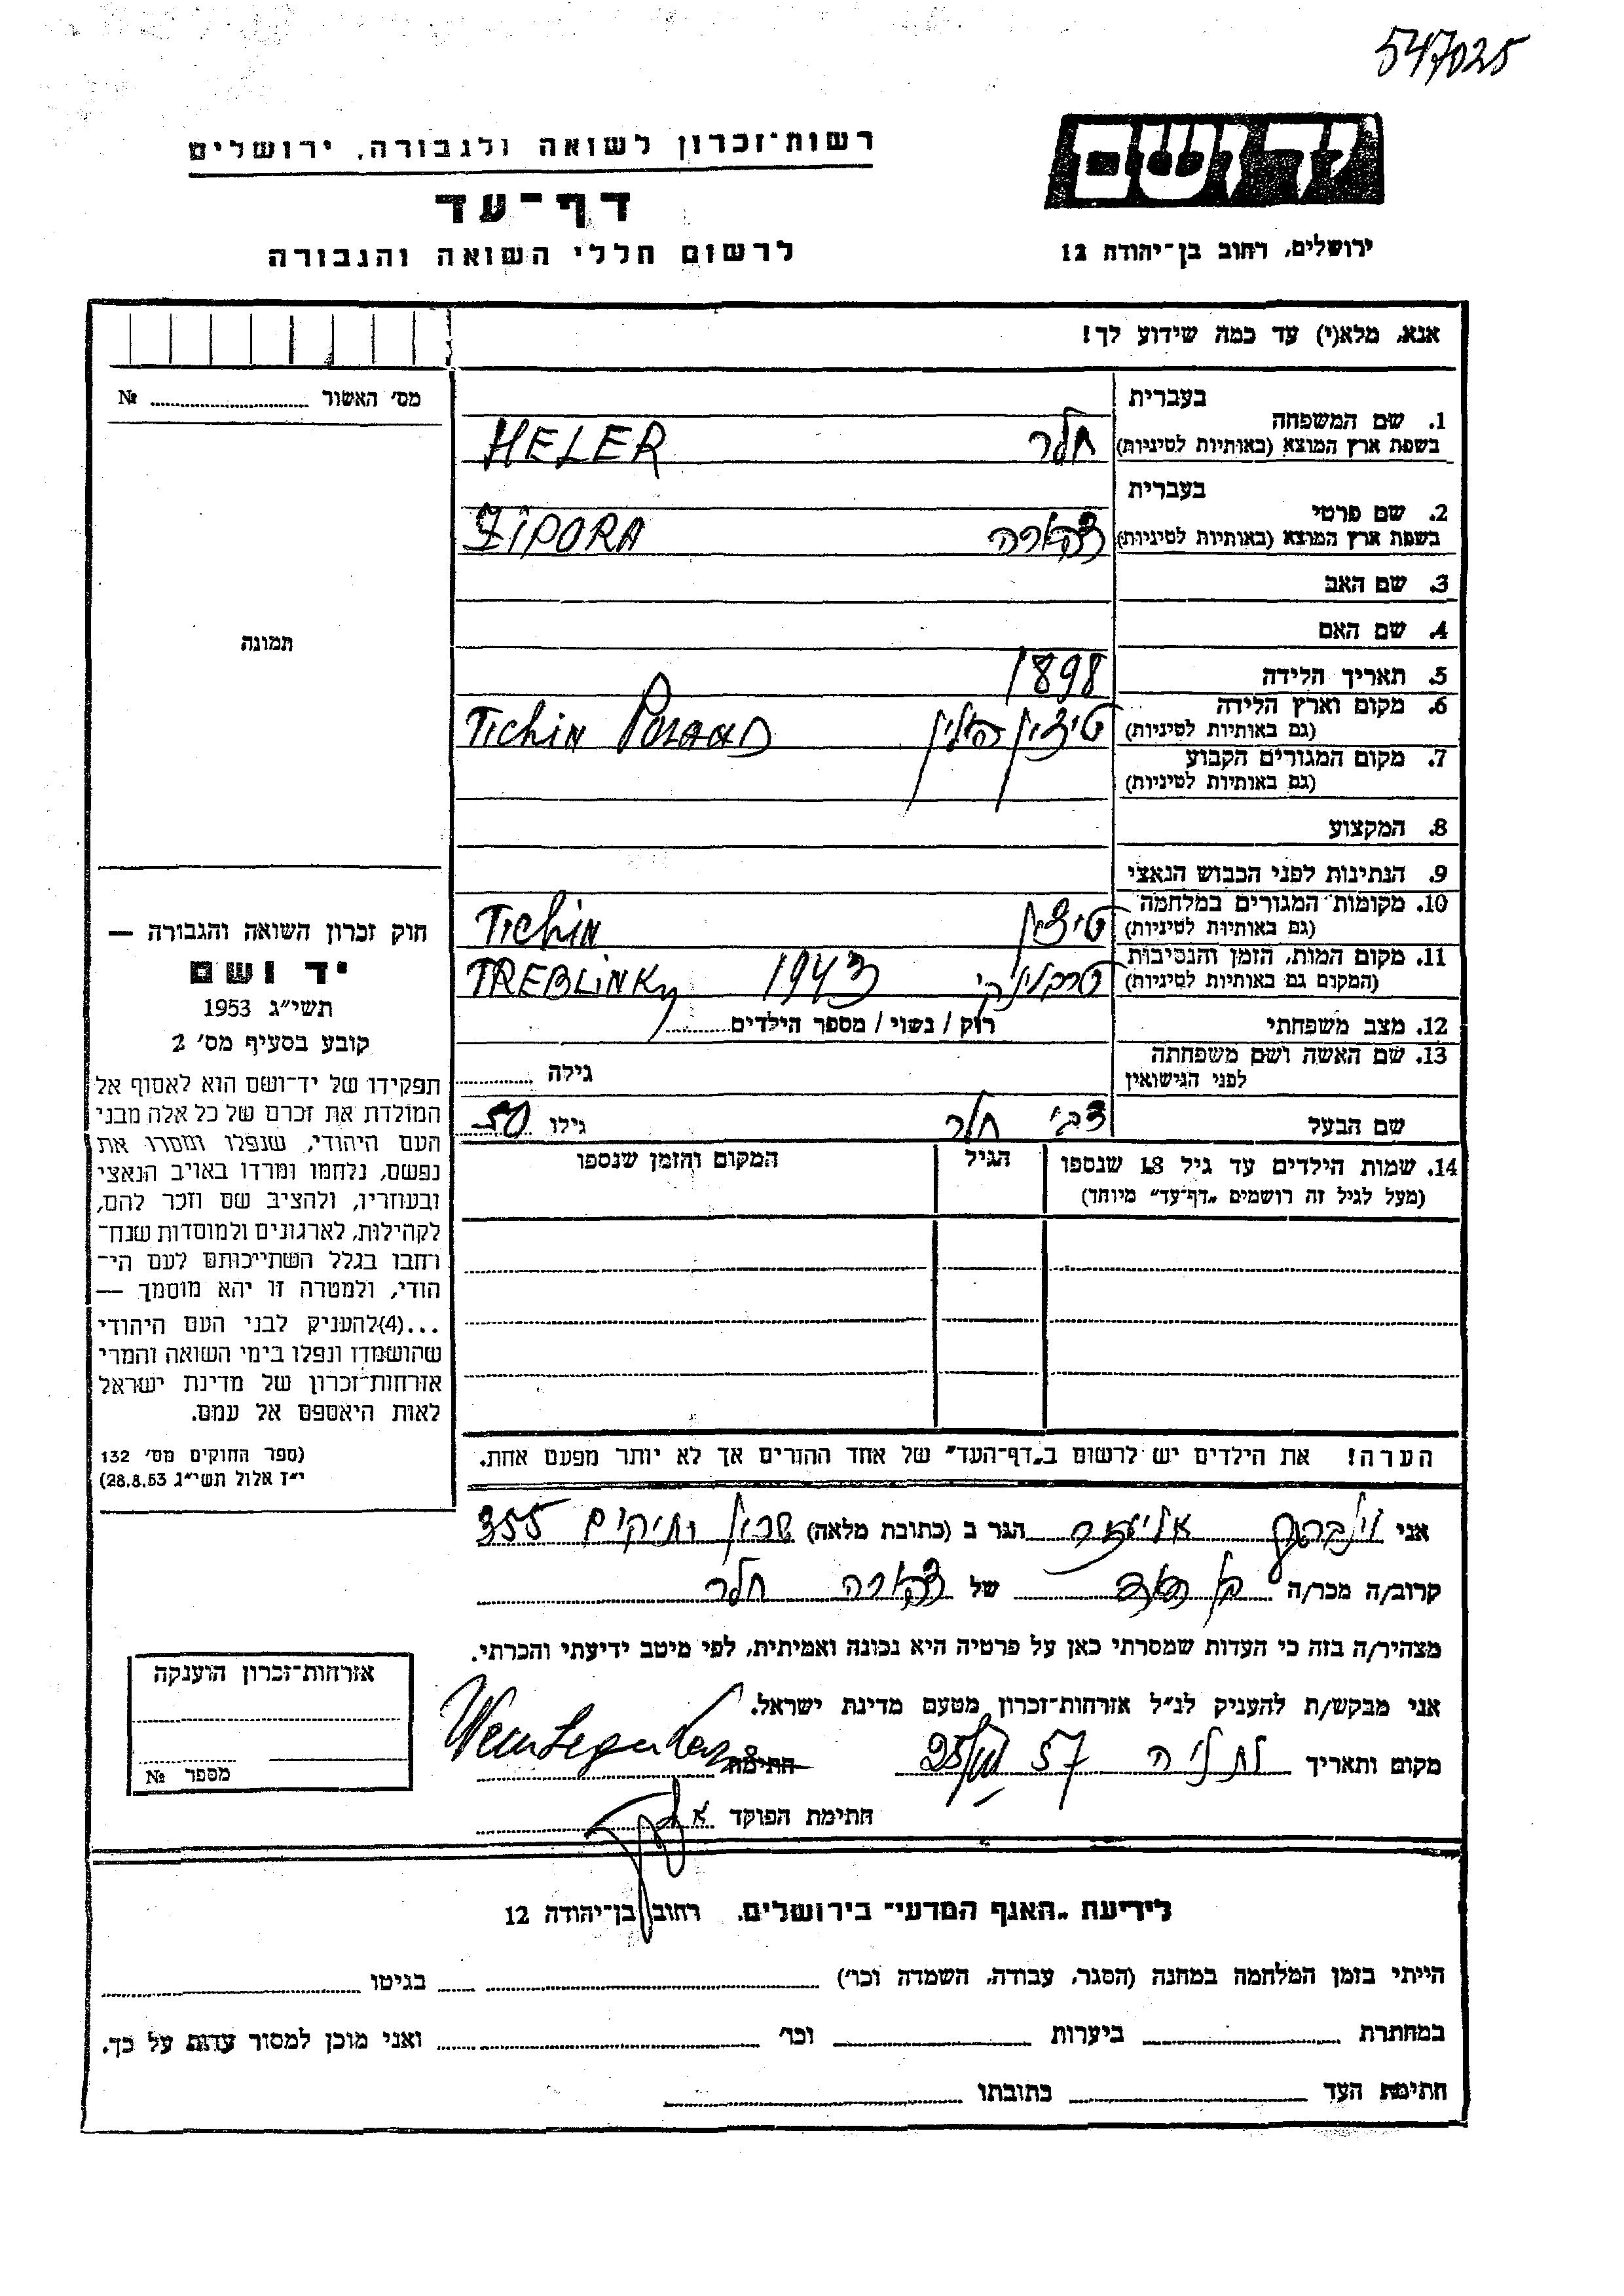 547025
יד ושם
רשות־זכרון לשואה ולגבורה, ירושלים
דף־עד
לרשום חללי השואה והגבורה
ירושלים, רחוב בן־יהודה 12
אנא, מלא(י) עד כמה שידוע לך!
מס׳ האשור № 
בעברית
1. שם המשפחה
בשפת ארץ המוצא (באותיות לטיניות) חלר HELER
בעברית
2. שם פרטי
בשפת ארץ המוצא (באותיות לטיניות) צפורה ZIPORA
3. שם האב
4. שם האם
תמונה
5. תאריך הלידה 1898
6. מקום וארץ הלידה
(גם באותיות לטיניות) טיצין פולין Tichin
7. מקום המגורים הקבוע
(גם באותיות לטיניות)
8. המקצוע
9. הנתינות לפני הכבוש הנאצי
10. מקומות המגורים במלחמה
(גם באותיות לטיניות) טיצין Tichin
11. מקום המות, הזמן והנסיבות
(המקום גם באותיות לטיניות) טרבלינקי 1943 TREBLINKY
12. מצב משפחתי רווק / נשוי / מספר הילדים
13. שם האשה ושם משפחתה
לפני הנישואין גילה
שם הבעל צבי חלר גילו 50
14. שמות הילדים עד גיל 18 שנספו הגיל המקום והזמן שנספו
(מעל לגיל זה רושמים „דף־עד” מיוחד)
חוק זכרון השואה והגבורה —
יד ושם
תשי״ג 1953
קובע בסעיף מס׳ 2
תפקידו של יד־ושם הוא לאסוף אל
המולדת את זכרם של כל אלה מבני
העם היהודי, שנפלו ומסרו את
נפשם, נלחמו ומרדו באויב הנאצי
ובעוזריו, ולהציב שם וזכר להם,
לקהילות, לארגונים ולמוסדות שנח־
רחבו בגלל השתייכותם לעם הי־
הודי, ולמטרה זו יהא מוסמך —
...(4)להעניק לבני העם היהודי
שהושמדו ונפלו בימי השואה והמרי
אזרחות־זכרון של מדינת ישראל
לאות היאספם אל עמם.
(ספר החוקים מס׳ 132
י״ז אלול תשי״ג 28.8.53)
הערה! את הילדים יש לרשום ב„דף־העד” של אחד ההורים אך לא יותר מפעם אחת.
אני אליעזר הגר ב (כתובת מלאה) שכון ותיקים 355
קרוב/ה מכר/ה בן דוד של צפורה חלר
מצהיר/ה בזה כי העדות שמסרתי כאן על פרטיה היא נכונה ואמיתית, לפי מיטב ידיעתי והכרתי.
אני מבקש/ת להעניק לנ״ל אזרחות־זכרון מטעם מדינת ישראל.
מקום ותאריך נתניה 57 חתימה
חתימת הפוקד
אזרחות־זכרון הוענקה
מספר №
לידיעת „האגף המדעי” בירושלים, רחוב בן־יהודה 12
הייתי בזמן המלחמה במחנה (הסגר, עבודה, השמדה וכו׳) בגיטו
במחתרת ביערות וכו׳ ואני מוכן למסור עדות על כך.
חתימת העד כתובתו